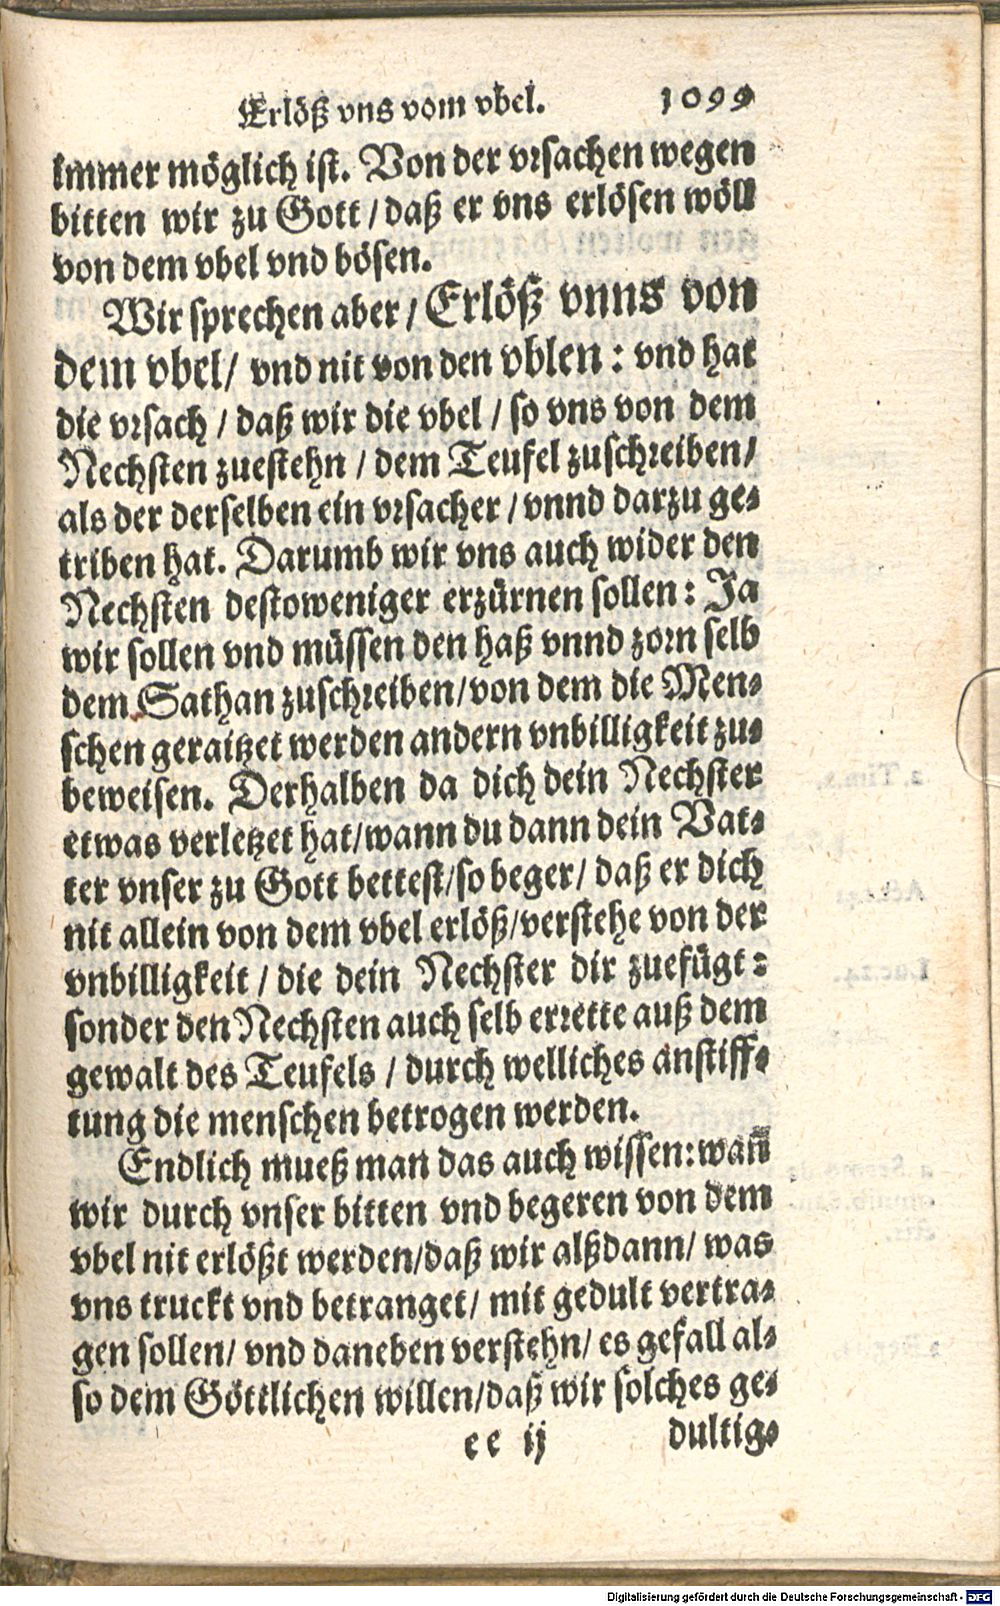 Erlöß vns vom vbel. 1099
immer möglich ist. Von der vrsachen wegen
bitten wir zu Gott / daß er vns erlösen wöll
von dem vbel vnd bösen.
Wir sprechen aber / Erlöß vnns von
dem vbel / vnd nit von den vblen : vnd hat
die vrsach / daß wir die vbel / so vns von dem
Nechsten zuestehn / dem Teufel zuschreiben /
als der derselben ein vrsacher / vnnd darzu ge⸗
triben hat. Darumb wir vns auch wider den
Nechsten destoweniger erzürnen sollen : Ja
wir sollen vnd müssen den haß vnnd zorn selb
dem Sathan zuschreiben / von dem die Men⸗
schen geraitzet werden andern vnbilligkeit zu⸗
beweisen. Derhalben da dich dein Nechster
etwas verletzet hat / wann du dann dein Vat⸗
ter vnser zu Gott bettest / so beger / daß er dich
nit allein von dem vbel erlöß / verstehe von der
vnbilligkeit / die dein Nechster dir zuefügt :
sonder den Nechsten auch selb errette auß dem
gewalt des Teufels / durch welliches anstiff⸗
tung die menschen betrogen werden.
Endlich mueß man das auch wissen: wañ
wir durch vnser bitten vnd begeren von dem
vbel nit erlößt werden / daß wir alßdann / was
vns truckt vnd betranget / mit gedult vertra⸗
gen sollen / vnd daneben verstehn / es gefall al⸗
so dem Göttlichen willen / daß wir solches ge⸗
ee ij dultig⸗
Digitalisierung gefördert durch die Deutsche Forschungsgemeinschaft - DFG